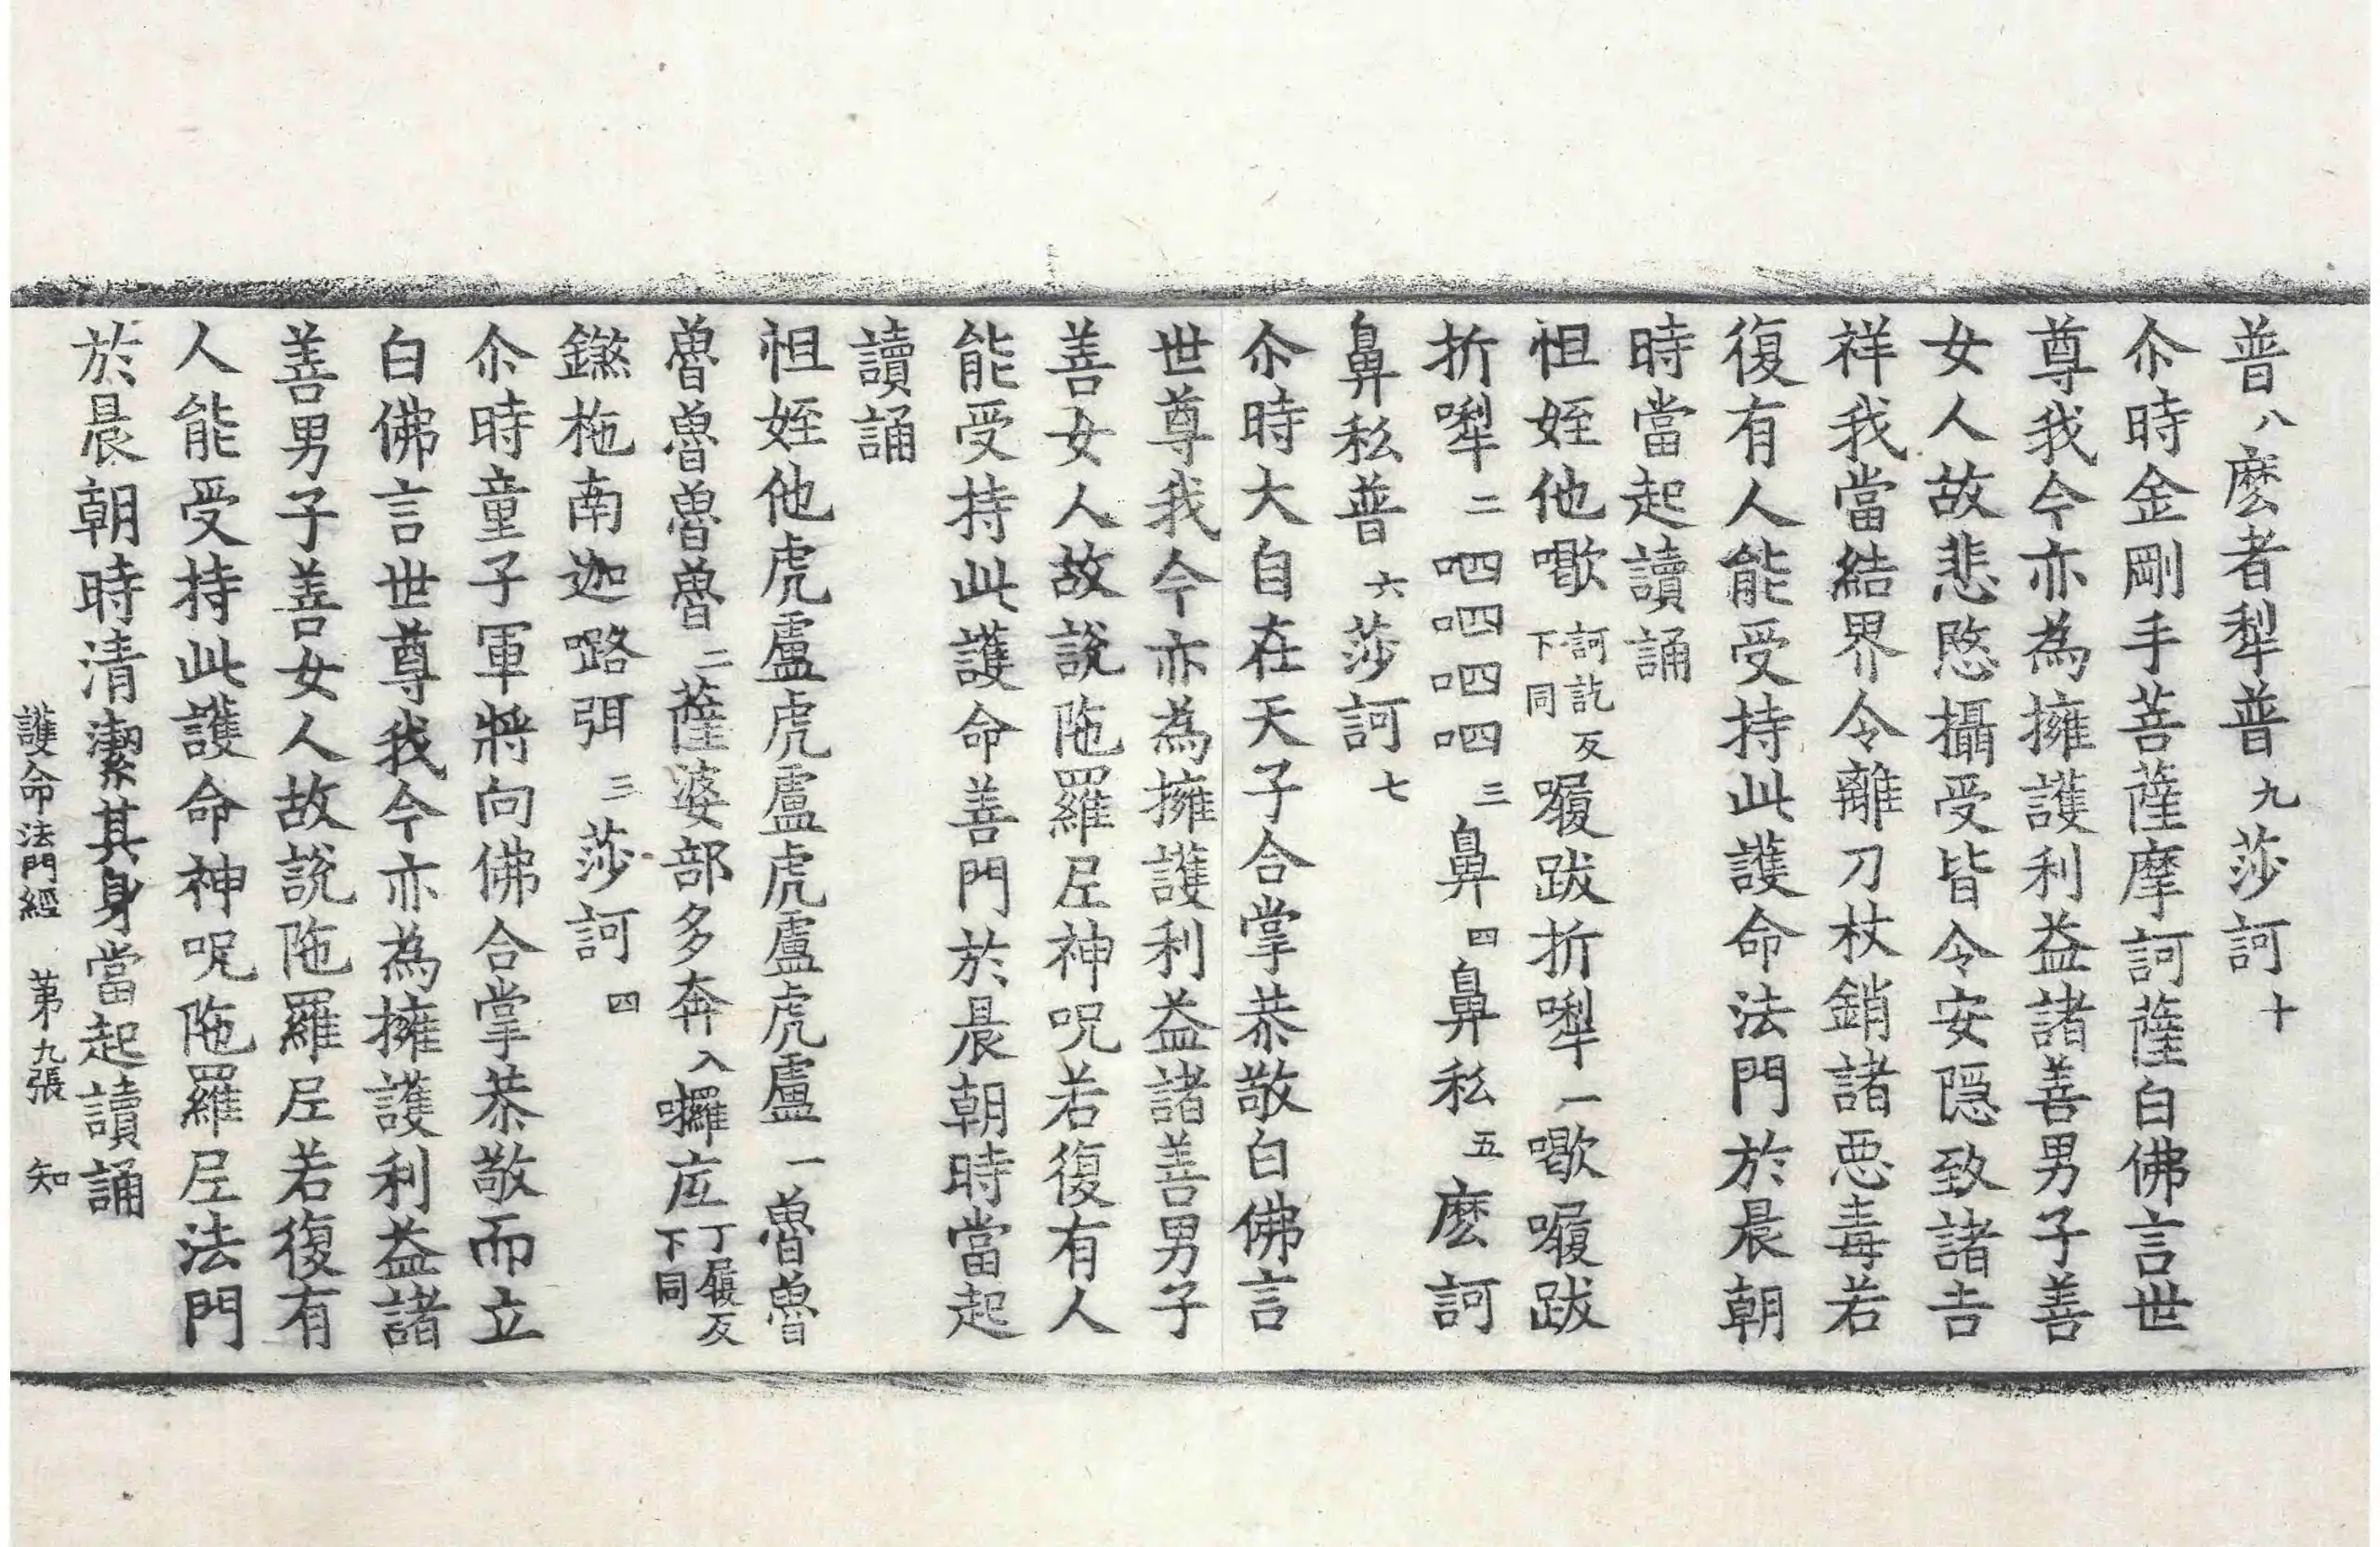 普八麽者犁普九莎訶十
尒時金剛手菩薩摩訶薩白佛言世
尊我今亦為擁護利益諸善男子善
女人故悲愍攝受皆令安隱致諸吉
祥我當結界令離刀杖銷諸惡毒若
復有人能受持此護命法門於晨朝
時當起讀誦
怛姪他㗿訶訖反下同囇跋折㗚一㗿囇跋
折㗚二呬呬呬呬三鼻四鼻私五麽訶
鼻私普六莎訶七
尒時大自在天子合掌恭敬白佛言
世尊我今亦為擁護利益諸善男子
善女人故說陁羅尼神呪若復有人
能受持此護命善門於晨朝時當起
讀誦
怛姪他虎盧虎盧虎盧虎盧一魯魯
魯魯魯魯二薩婆部多奔入囉㡳丁履反下同
鑠拖南迦㗉弭三莎訶四
尒時童子軍將向佛合掌恭敬而立
白佛言世尊我今亦為擁護利益諸
善男子善女人故說陁羅尼若復有
人能受持此護命神呪陁羅尼法門
於晨朝時清潔其身當起讀誦
護命法門經 第九張 知